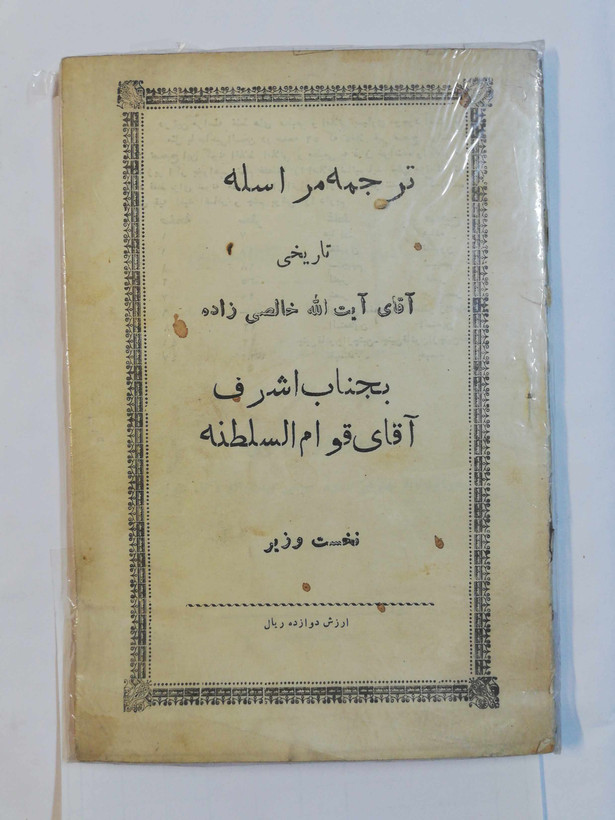 ترجمه مراسله
تاریخی
آقای آیت الله خالصی زاده
بجناب اشرف
آقای قوام السلطنه
نخست وزیر
ارزش دوازده ریال